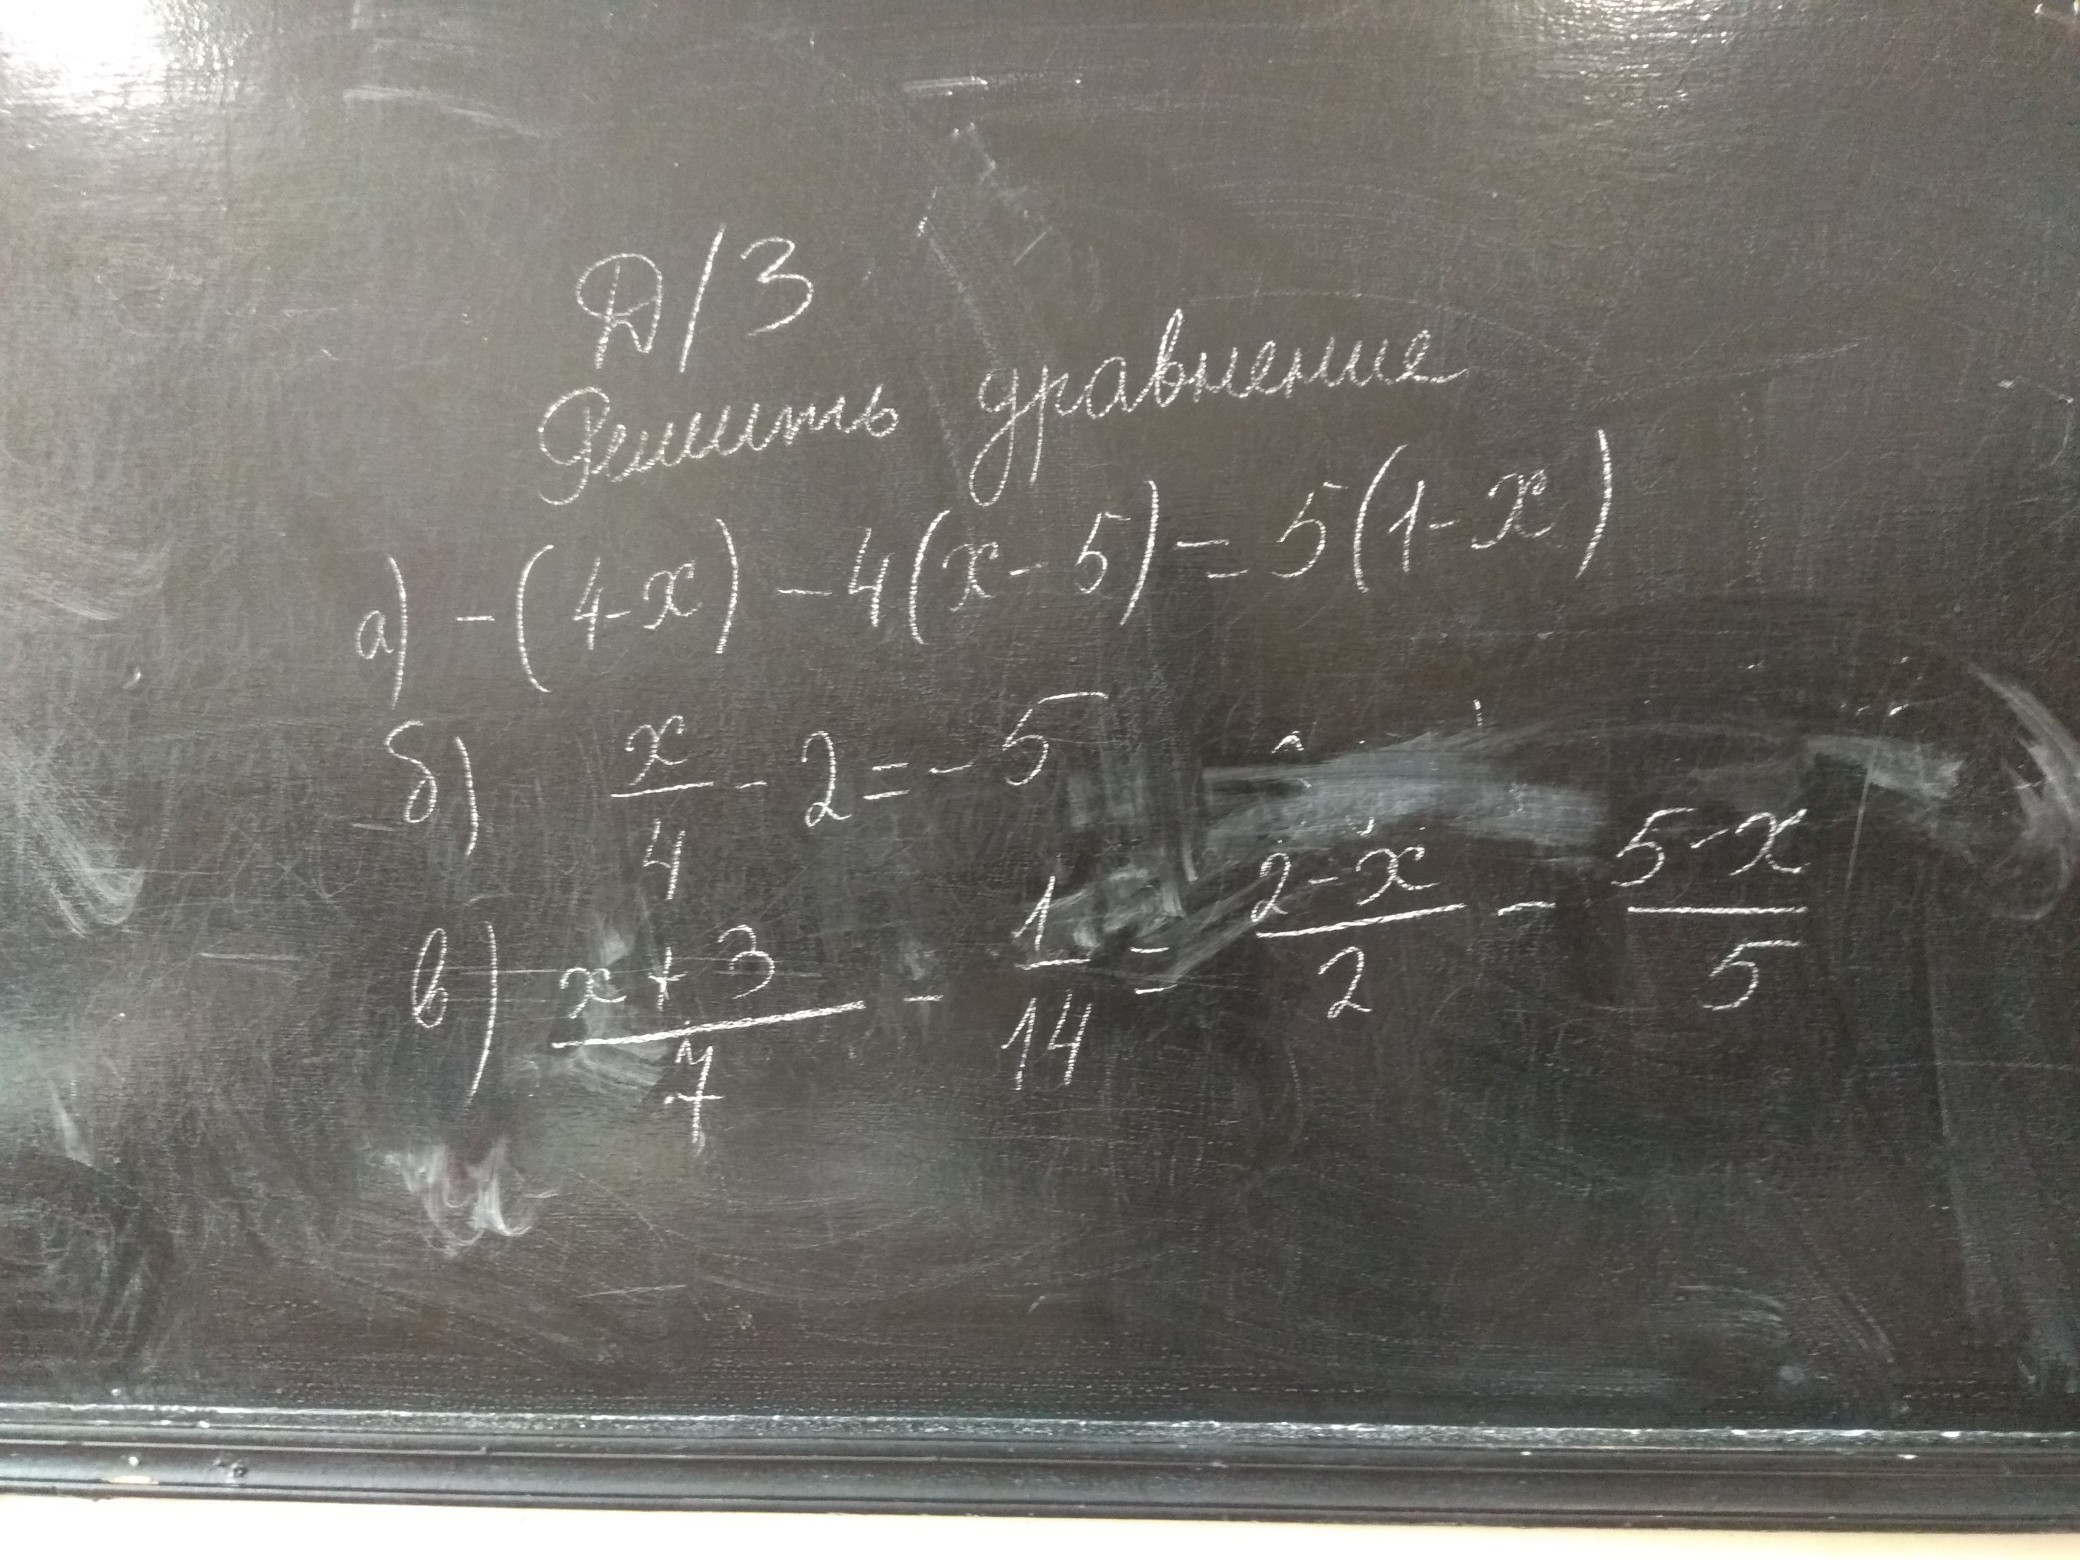 Д/З
Решить уравнение
а) -(4-x) - 4(x-5) = 5(1-x)
б) x/4 - 2 = -5
в) (x+3)/7 - 1/14 = (2-x)/2 - (5-x)/5